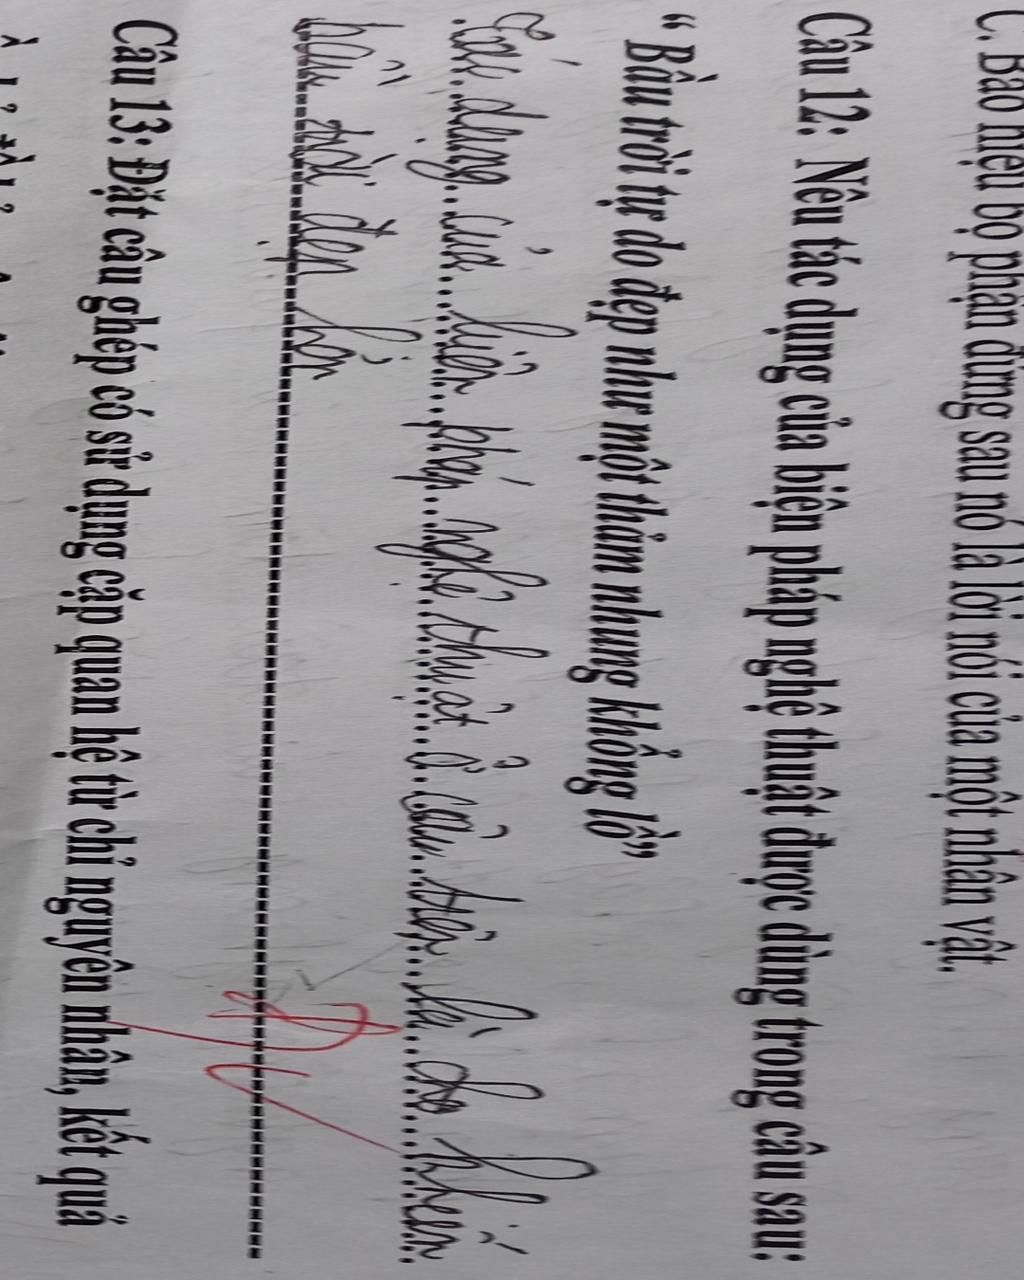 C. Báo hiệu bộ phận đứng sau nó là lời nói của một nhân vật.
Câu 12: Nêu tác dụng của biện pháp nghệ thuật được dùng trong câu sau:
“ Bầu trời tự do đẹp như một thảm nhung khổng lồ”
Tác dụng của biện pháp nghệ thuật ở câu trên là
bầu trời đẹp hơn
Câu 13: Đặt câu ghép có sử dụng cặp quan hệ từ chỉ nguyên nhân, kết quả